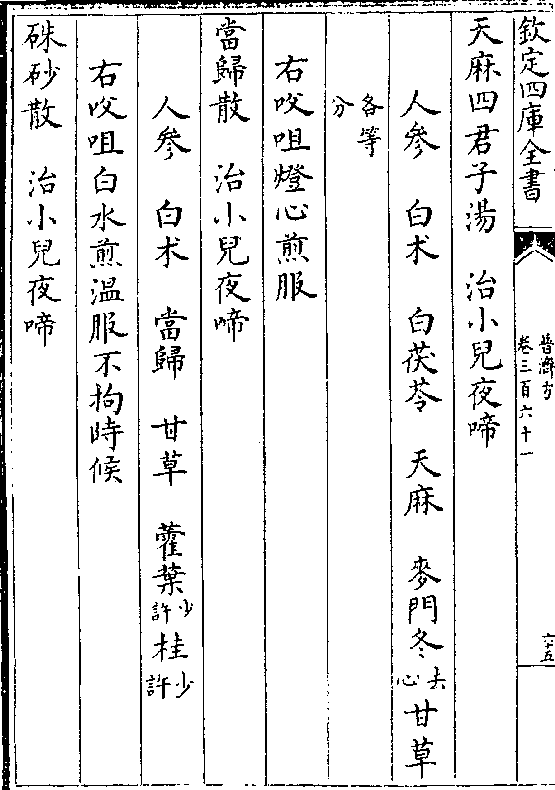 欽定四庫全書
普濟方
卷三百六十一
六十五
天麻四君子湯　治小兒夜啼
人參　白术　白茯苓　天麻　麥門冬去心甘草
各等分
右㕮咀燈心煎服
當歸散　治小兒夜啼
人參　白术　當歸　甘草　藿葉少許桂少許
右㕮咀白水煎温服不拘時候
硃砂散　治小兒夜啼